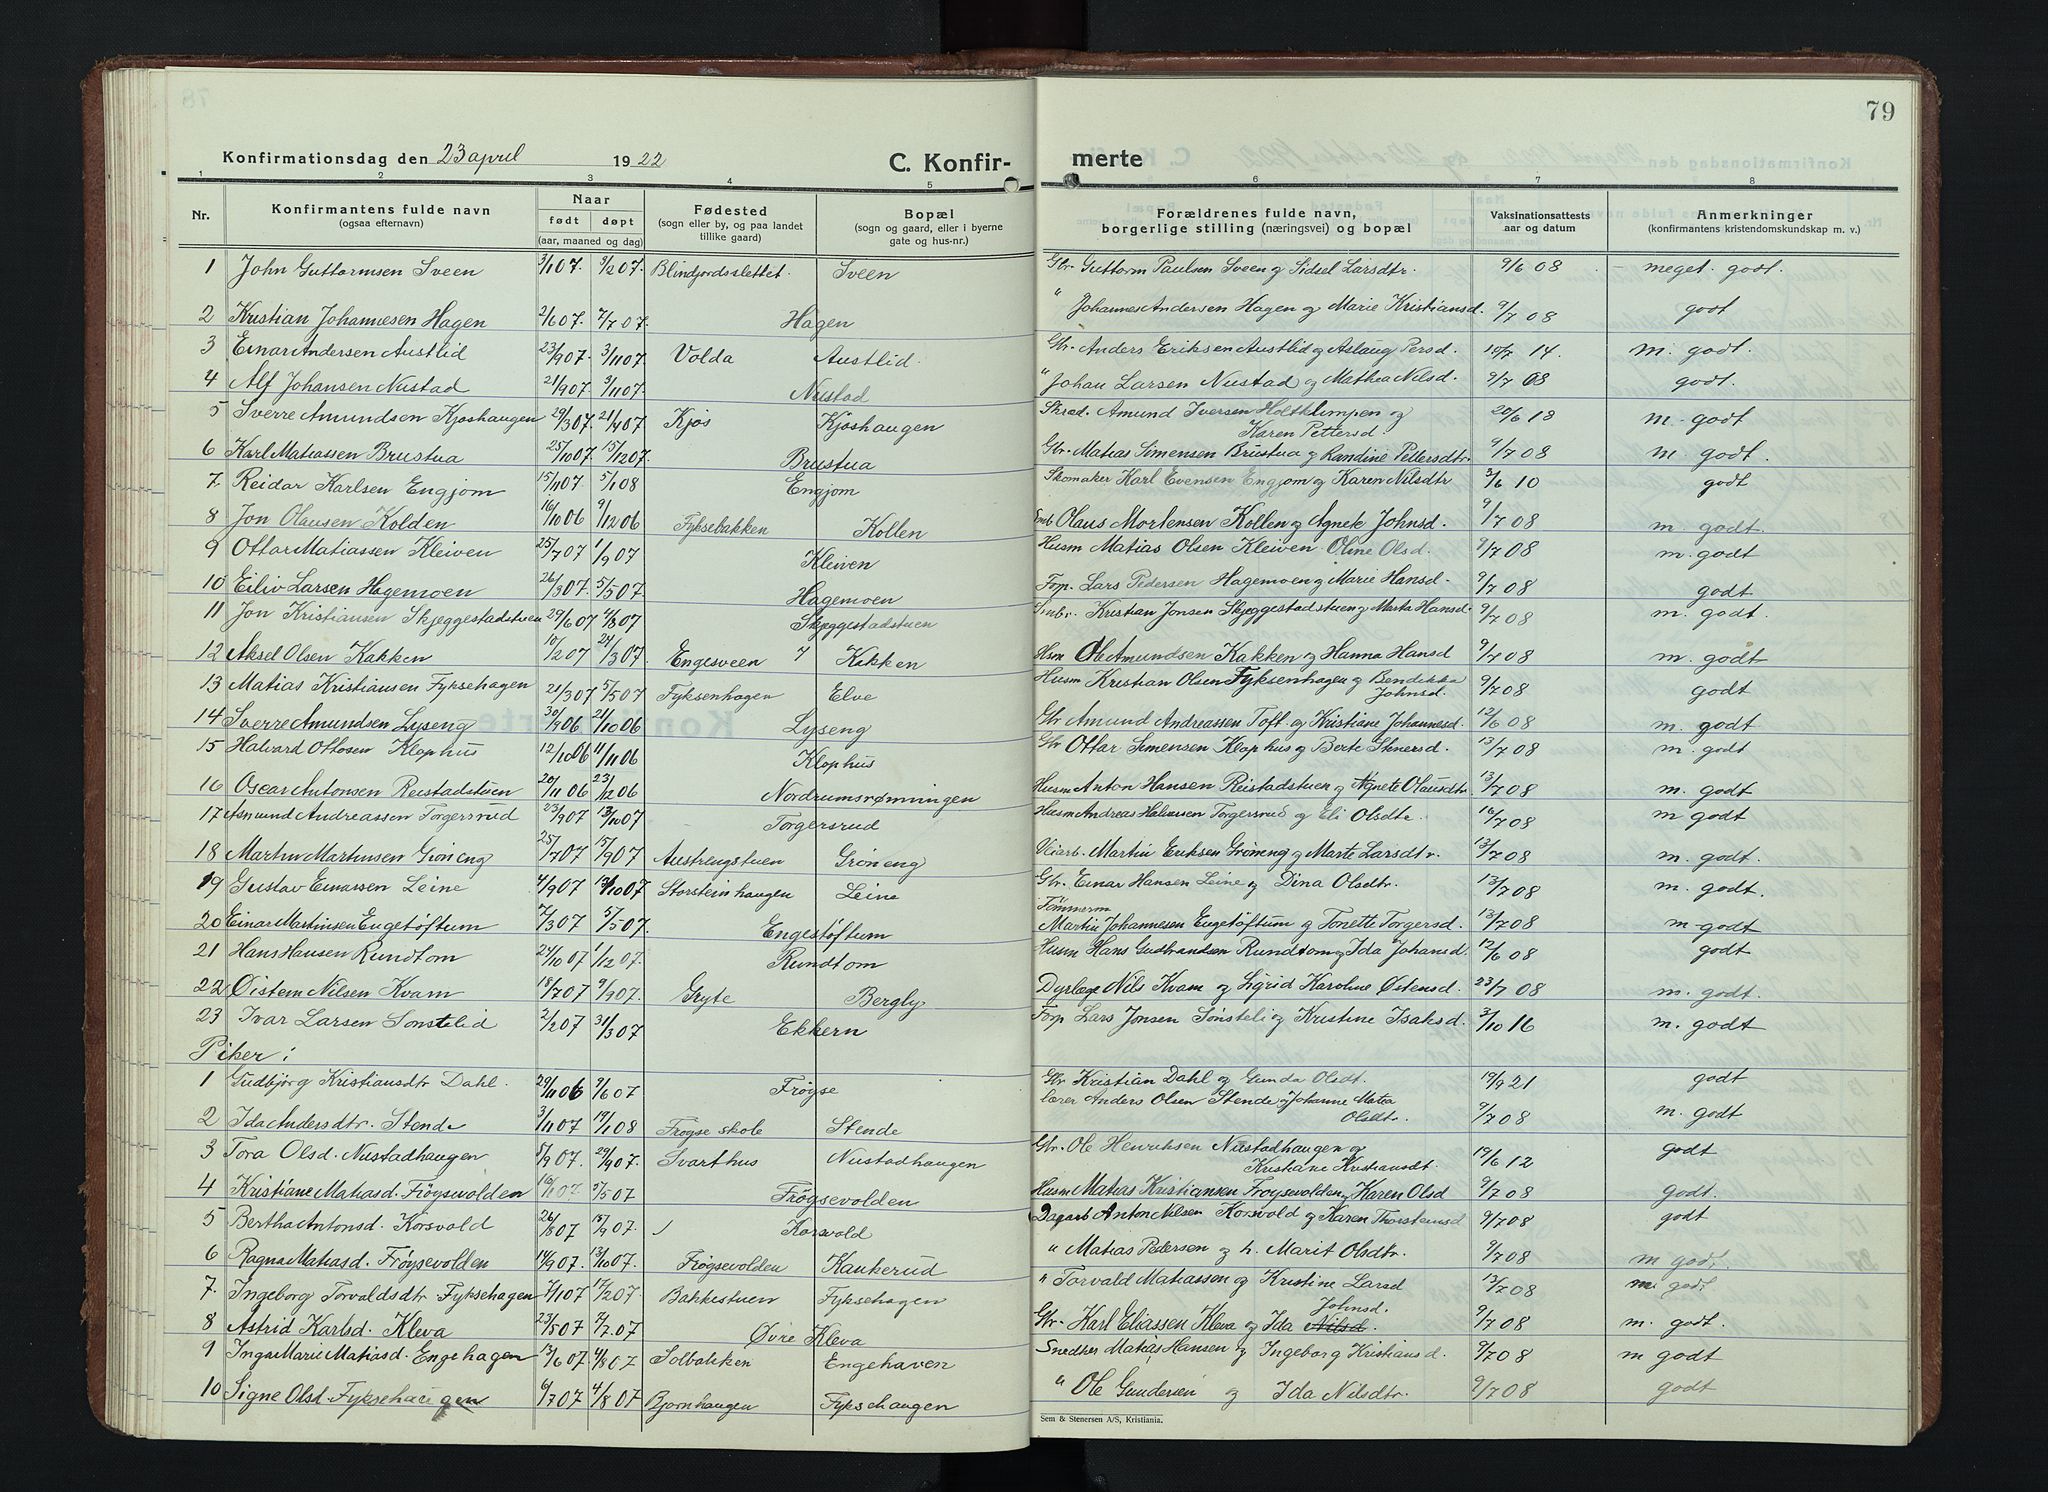 79
Konfirmationsdag den 23 april 1922 C. Konfir- merte
1 2 3 4 5 6 7 8
Nr. Konfirmantens fulde navn (ogsaa efternavn) Naar født døpt (aar, maaned og dag) Fødested (sogn eller by, og paa landet tillike gaard) Bopæl (sogn og gaard, eller i byerne gate og hus-nr.) Forældrenes fulde navn, borgerlige stilling (næringsvei) og bopæl Vaksinationsattests aar og datum Anmerkninger (konfirmantens kristendomskundskap m. v.)
1 John Guttormsen Sveen 3/1 07. 3/2 07. Blindjordsslettet. Sveen Gbr. Guttorm Paulsen Sveen og Sidsel Larsdtr. 9/6 08 meget godt.
2 Kristian Johannesen Hagen 2/6 07. 7/7 07. Hagen " Johannes Andersen Hagen og Marie Kristiansd. 9/7 08 godt
3 Einar Andersen Austlid 23/9 07. 3/11 07. Volda Austlid. Gbr. Anders Eriksen Austlid og Aslaug Persd. 10/7 14. m. godt.
4 Alf Johansen Nustad 21/9 07. 3/11 07. Nustad " Johan Larsen Nustad og Mathea Nilsd. 9/7 08 godt.
5 Sverre Amundsen Kjøshaugen 29/3 07. 21/4 07. Kjøs Kjøshaugen Skræd. Amund Iversen Holtklimpen og Karen Pettersd. 20/6 18 m. godt
6 Karl Matiassen Brustua 25/10 07 15/12 07. Brustua Gbr. Matias Simensen Brustua og Randine Pettersdtr. 9/7 08 m. godt.
7. Reidar Karlsen Engjom 15/11 07 5/1 08 Engjom Skomaker Karl Evensen Engjom og Karen Nilsdtr 3/6 10 godt
8 Jon Olausen Kolden 16/10 06 9/12 06 Fyksebakken Kollen Olaus Mortensen Kollen og Agnete Johnsd. 9/7 08 m. godt.
9 Ottar Matiassen Kleiven 25/7 07 1/9 07 Kleiven Husm Matias Olsen Kleiven Oline Olsd. 9/7 08 m. godt
10 Eiliv Larsen Hagemoen 26/3 07 5/5 07 Hagemoen Forp. Lars Pedersen Hagemoen og Marie Hansd. 9/7 08 godt
11 Jon Kristiansen Skjeggestadstuen 29/6 07 4/8 07 Skjeggestadstuen Kristian Jonsen Skjeggestadstuen og Marta Hansd. 9/7 08 m. godt.
12 Aksel Olsen Kakken 10/2 07 24/3 07 Engesveen Kakken Hsm Ole Amundsen Kakken og Hanna Hansd 9/7 08 m. godt
13 Matias Kristiansen Fyksehagen 21/3 07 5/5 07 Fyksenhagen Elve Husm Kristian Olsen Fyksenhagen og Bendikka Johnsd. 9/7 08 godt
14 Sverre Amundsen Lyseng 30/9 06 21/10 06 Lyseng Gbr Amund Andreassen Toft og Kristiane Johannesd. 12/6 08 m. godt
15 Halvard Ottosen Klophus 12/10 06 4/11 06 Klophus Gbr Ottar Simensen Klophus og Berte Stenersd. 13/7 08 m. godt
16 Oscar Antonsen Reistadstuen 20/11 06 23/12 06 Nordrumsrønningen Husm Anton Hansen Reistadstuen og Agnete Olausdtr. 13/7 08 m. godt
17 Asmund Andreassen Torgersrud 23/9 07 13/10 07 Torgersrud Husm Andreas Halvorsen Torgersrud og Eli Olsdtr. 16/7 08 m godt
18 Martin Martinsen Grøneng 25/7 07 15/9 07 Austrengstuen Grøneng Veiarb. Martin Eriksen Grøneng og Marte Larsdtr. 13/7 08 m. godt.
19 Gustav Einarsen Leine 4/9 07 13/10 07 Storsteinhaugen Leine Gbr. Einar Hansen Leine og Dina Olsdtr. 13/7 08 m. godt.
20 Einar Martinsen Engetøftum 7/3 07 5/5 07. Engestøftum Tømmerm Martin Johannesen Engetøftum og Tonette Torgersd. 13/7 08 m. godt
21 Hans Hansen Rundtom 24/10 07 1/12 07. Rundtom Husm Hans Gudbrandsen Rundtom og Ida Johansd. 12/6 08 godt
22 Øistein Nilsen Kvam 18/7 07 9/9 07. Gryte Bergly Dyrlæge Nils Kvam og Sigrid Karoline Østensd. 23/7 08 m. godt.
23 Ivar Larsen Sønstelid 2/2 07 31/3 07 Ekkern Forp Lars Jonsen Sønsteli og Kristine Isaksd. 3/10 16 m. godt
Piker:
1 Gudbjørg Kristiansdtr Dahl. 29/11 06 9/6 07 Frøyse Gbr Kristian Dahl og Gunda Olsdt. 19/9 21 godt
2 Ida Andersdtr. Stende 3/11 07 19/1 08 Frøyse skole Stende lærer Anders Olsen Stende og Johanne Matea Olsdtr. 9/7 08 m. godt
3 Tora Olsd. Nustadhaugen 8/9 07. 29/9 07. Svarthus Nustadhaugen Gbr. Ole Henriksen Nustadhaugen og Kristiane Kristiansdt. 19/6 12 godt
4 Kristiane Matiasd. Frøysevolden 16/1 07. 5/5 07 Frøysevolden Husm Matias Kristiansen Frøysevolden og Karen Olsd 9/7 08 godt.
5 Bertha Antonsd. Korsvold 26/8 07 15/9 07. Korsvold Dagarb Anton Nilsen Korsvold og Karen Thorsteinsd 9/7 08 godt
6 Ragna Matiasd. Frøysevolden 14/9 07. 13/10 07. Frøysevolden Kankerud " Matias Pedersen og h. Marit Olsdtr. 9/7 08 m godt.
7. Ingeborg Torvaldsdtr Fyksehagen 7/1 07 17/2 07. Bakkestuen Fyksehagen " Torvald Matiassen og Kristine Larsd 13/7 08 m. godt
8 Astrid Karlsd. Kleva 23/5 07 7/7 07 Øvre Kleva Gbr. Karl Eliassen Kleva og Ida Nilsd. Johnsd. 9/7 08 m. godt.
9 Inga Marie Matiasd. Engehagen 13/6 07 4/8 07 Solbakken Engehaven Snedker Matias Hansen og Ingeborg Kristiansd. 9/7 08 m godt
10 Signe Olsd. Fyksehaugen 6/7 07 4/8 07 Bjørnhaugen Fyksehaugen " Ole Gundersen og Ida Nilsdtr. 9/7 08 godt
Sem & Stenersen A/S, Kristiania.